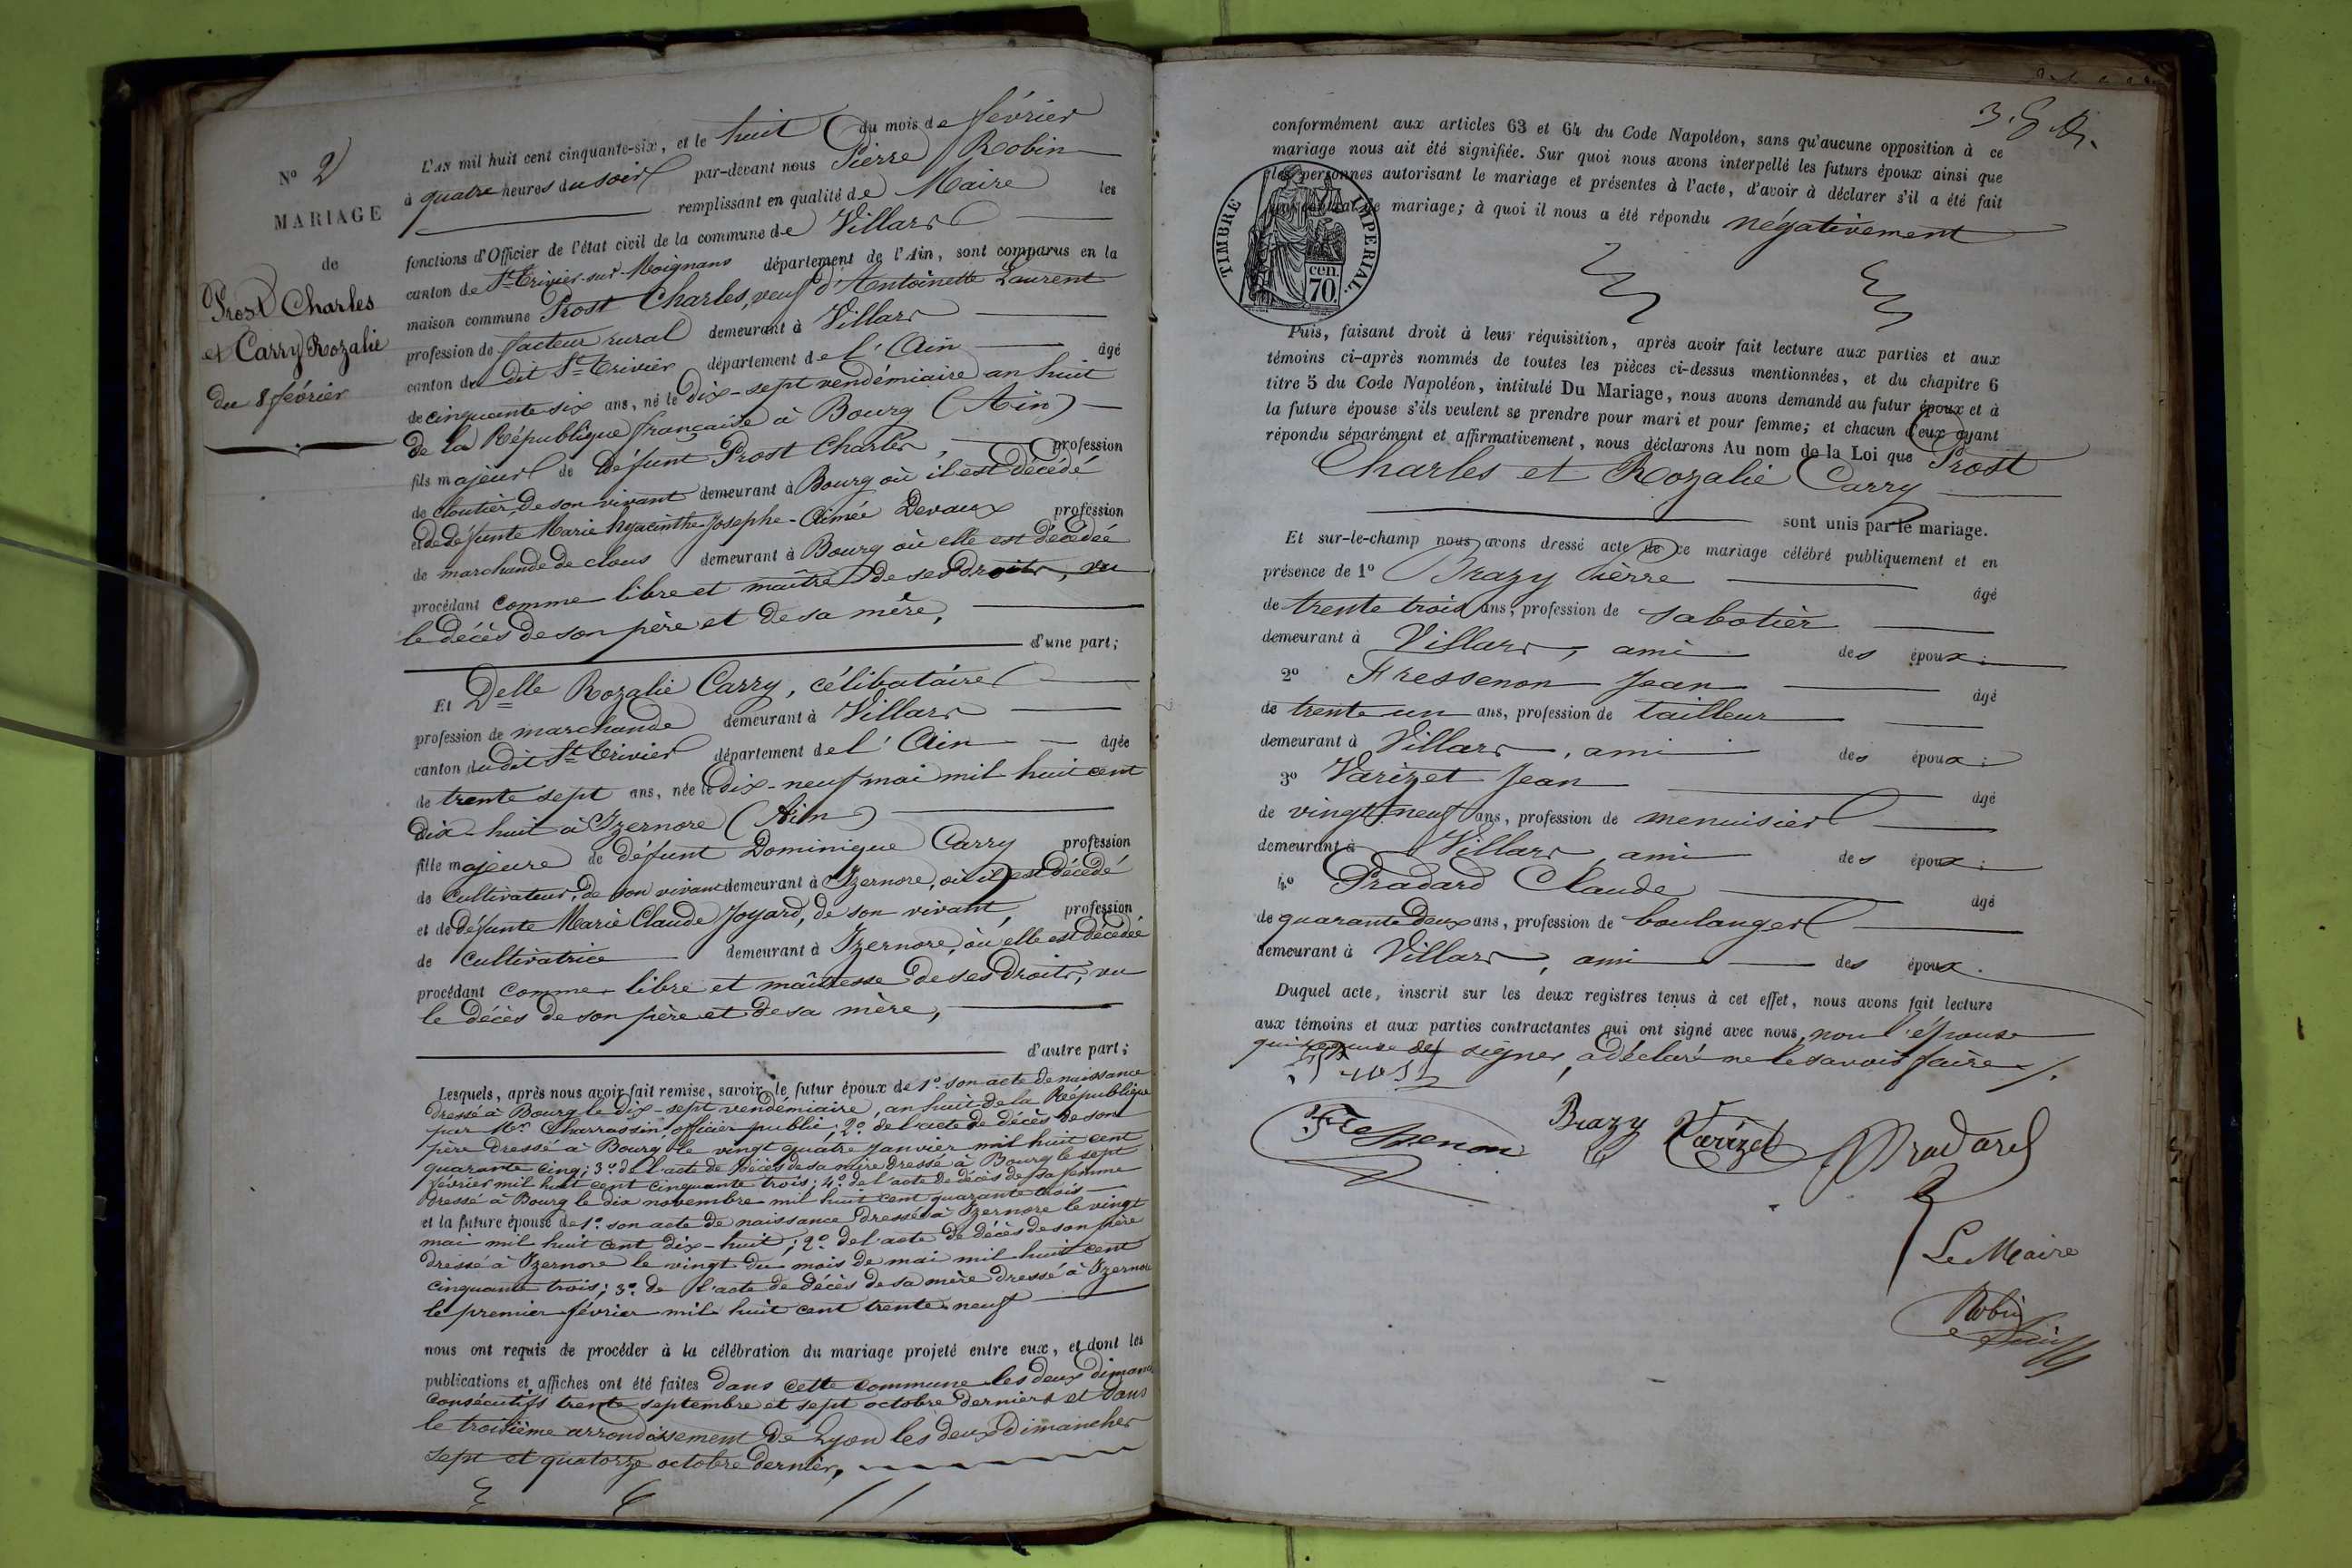 N° 2
MARIAGE
de
Prost Charles
et Carry Rozalie
du 8 février
L'AN mil huit cent cinquante-six, et le huit du mois de février
à quatre heures du soir par-devant nous Pierre Robin
remplissant en qualité de Maire les
fonctions d'Officier de l'état civil de la commune de Villars
canton de St Trivier-sur-Moignans département de l'Ain, sont comparus en la
maison commune Prost Charles, veuf d'Antoinette Laurent
profession de facteur rural demeurant à Villars
canton du dit St Trivier département de l'Ain âgé
de cinquante six ans, né le dix-sept vendémiaire an huit
de la République française à Bourg (Ain)
fils majeur de défunt Prost Charles, profession
de cloutier, de son vivant demeurant à Bourg où il est décédé
et de défunte Marie hyacinthe Josephe-Aimée Devaux profession
de marchande de clous demeurant à Bourg où elle est décédée
procédant comme libre et maître de ses droits, vu
le décès de son père et de sa mère,
d'une part;
Et Delle Rozalie Carry, célibataire
profession de marchande demeurant à Villars
canton du dit St Trivier département de l'Ain âgée
de trente sept ans, née le dix-neuf mai mil huit cent
dix-huit à Izernore (Ain)
fille majeure de défunt Dominique Carry profession
de cultivateur, de son vivant demeurant à Izernore, où il est décédé
et de défunte Marie Claude Joyard, de son vivant, profession
de cultivatrice demeurant à Izernore, où elle est décédée
procédant comme libre et maîtresse de ses droits, vu
le décès de son père et de sa mère,
d'autre part;
Lesquels, après nous avoir fait remise, savoir, le futur époux de 1° son acte de naissance
dressé à Bourg le dix-sept vendémiaire, an huit de la République
par Mr Charrassin, officier public; 2° de l'acte de décès de son
père dressé à Bourg, le vingt quatre janvier mil huit cent
quarante cinq; 3° de l'acte de décès de sa mère dressé à Bourg le sept
février mil huit cent cinquante trois; 4° de l'acte de décès de sa femme
dressé à Bourg le dix novembre mil huit cent quarante trois
et la future épouse de 1° son acte de naissance dressé à Izernore le vingt
mai mil huit cent dix-huit; 2° de l'acte de décès de son père
dressé à Izernore le vingt du mois de mai mil huit cent
cinquante trois; 3° de l'acte de décès de sa mère dressé à Izernore
le premier février mil huit cent trente neuf
nous ont requis de procéder à la célébration du mariage projeté entre eux, et dont les
publications et affiches ont été faites dans cette commune les deux dimanc
consécutifs trente septembre et sept octobre derniers et dans
le troisième arrondissement de Lyon les deux dimanches
sept et quatorze octobre dernier,
conformément aux articles 63 et 64 du Code Napoléon, sans qu'aucune opposition à ce
mariage nous ait été signifiée. Sur quoi nous avons interpellé les futurs époux ainsi que
les personnes autorisant le mariage et présentes à l'acte, d'avoir à déclarer s'il a été fait
un contrat de mariage; à quoi il nous a été répondu négativement
TIMBRE IMPERIAL.
70 cen.
Puis, faisant droit à leur réquisition, après avoir fait lecture aux parties et aux
témoins ci-après nommés de toutes les pièces ci-dessus mentionnées, et du chapitre 6
titre 5 du Code Napoléon, intitulé Du Mariage, nous avons demandé au futur époux et à
la future épouse s'ils veulent se prendre pour mari et pour femme; et chacun d'eux ayant
répondu séparément et affirmativement, nous déclarons Au nom de la Loi que Prost
Charles et Rozalie Carry
sont unis par le mariage.
Et sur-le-champ nous avons dressé acte de ce mariage célébré publiquement et en
présence de 1° Brazy Pierre âgé
de trente trois ans, profession de sabotier
demeurant à Villars, ami des époux;
2° Fressenon Jean âgé
de trente un ans, profession de tailleur
demeurant à Villars, ami des époux;
3° Varizet Jean âgé
de vingt neuf ans, profession de menuisier
demeurant à Villars, ami des époux;
4° Pradard Claude âgé
de quarante deux ans, profession de boulanger
demeurant à Villars, ami des époux.
Duquel acte, inscrit sur les deux registres tenus à cet effet, nous avons fait lecture
aux témoins et aux parties contractantes qui ont signé avec nous, non l'épouse
qui requise de signer, a déclaré ne le savoir faire
Fressenon Brazy Varizet Pradard
Le Maire
Robin